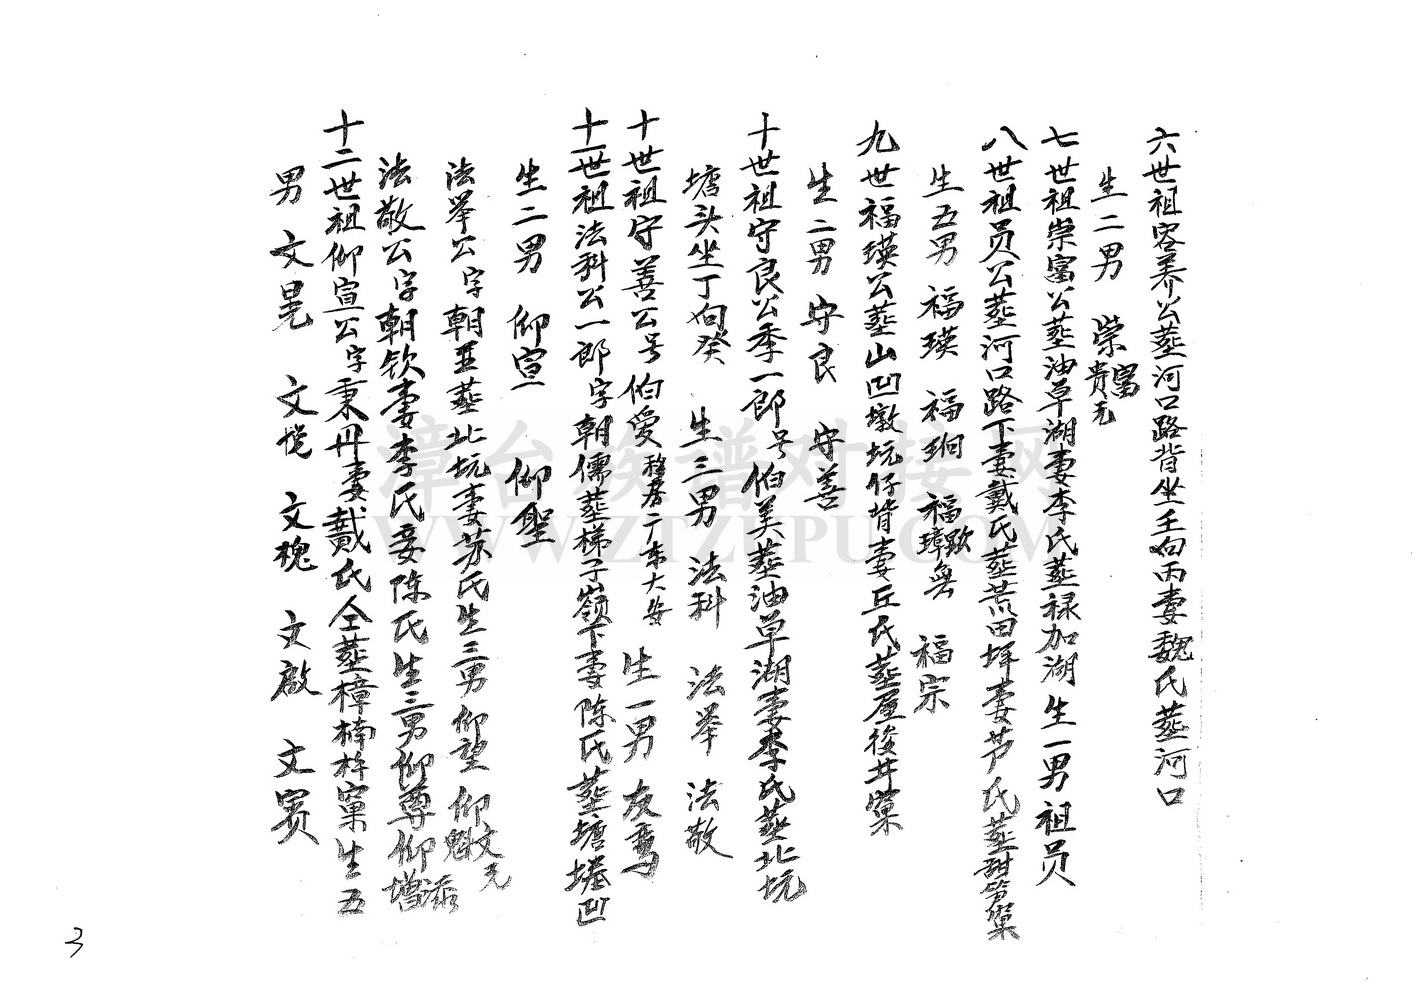 六世祖容养公葬河口路背坐壬向丙妻魏氏葬河口
生二男 崇富 贵元
七世祖崇富公葬油草湖妻李氏葬禄加湖生一男祖员
八世祖员公葬河口路下妻戴氏葬荒田坪妻芦氏葬甜笋窠
生五男 福瑛 福珦 福璋 福宗
九世福瑛公葬山凹墩坑仔背妻丘氏葬屋後井窠
生二男 守良 守善
十世祖守良公季一郎号伯美葬油草湖妻李氏葬北坑
塘头坐丁向癸 生三男 法科 法举 法敬
十世祖守善公号伯爱移居广东大安 生一男 友
十一世祖法科公一郎字朝儒葬梯子嶺下妻陈氏葬塘塂凹
生二男 仰宣 仰聖
法举公字朝亚葬北坑妻苏氏生三男仰望 仰文 魁元
法敬公字朝钦妻李氏妾陈氏生三男仰尊仰增 添
十二世祖仰宣公字秉丹妻戴氏仝葬樟楠柞窠生五
男 文晃 文悦 文槐 文啟 文赛
漳台族谱对接网
WWW.ZTZUPU.COM
3